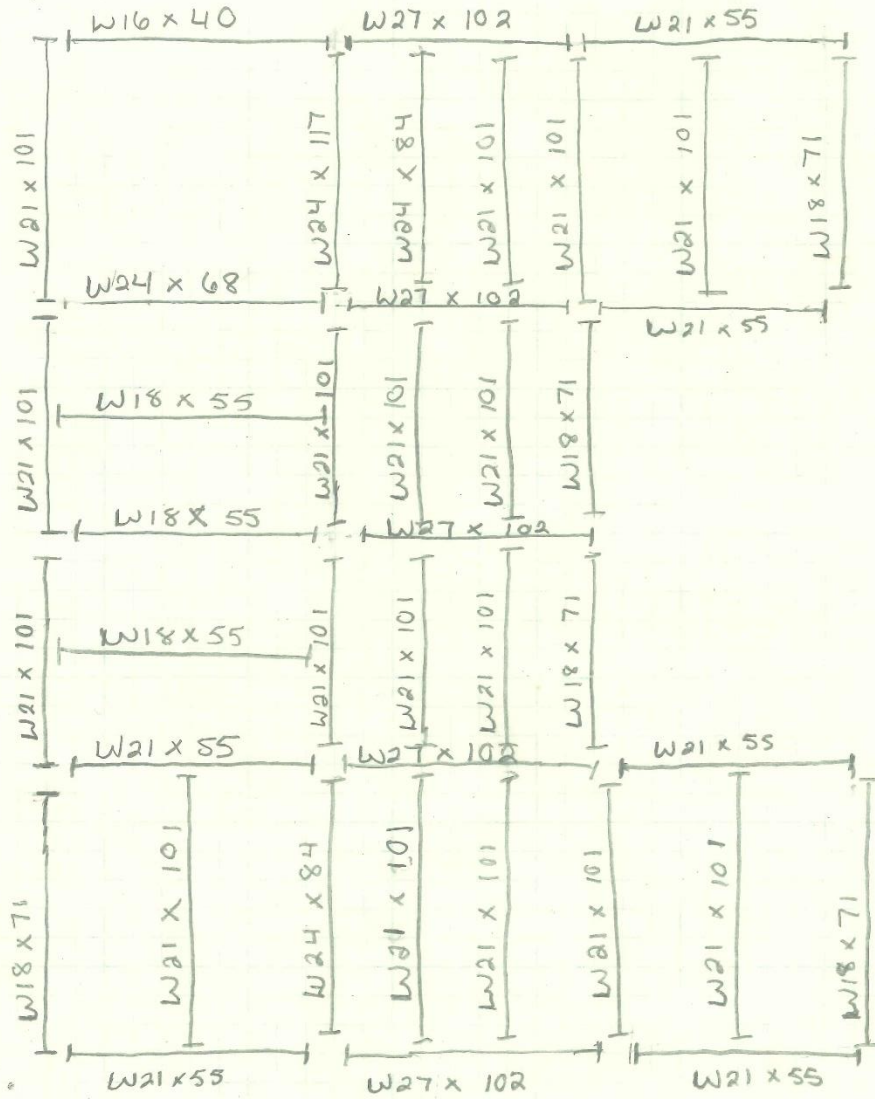 W16 x 40
W27 x 102
W21 x 55
W21 x 101
W24 x 117
W24 x 84
W21 x 101
W21 x 101
W21 x 101
W18 x 71
W24 x 68
W27 x 102
W21 x 55
W21 x 101
W18 x 55
W21 x 101
W21 x 101
W21 x 101
W18 x 71
W18 x 55
W27 x 102
W21 x 101
W18 x 55
W21 x 101
W21 x 101
W21 x 101
W18 x 71
W21 x 55
W27 x 102
W21 x 55
W18 x 71
W21 x 101
W24 x 84
W21 x 101
W21 x 101
W21 x 101
W21 x 101
W18 x 71
W21 x 55
W27 x 102
W21 x 55